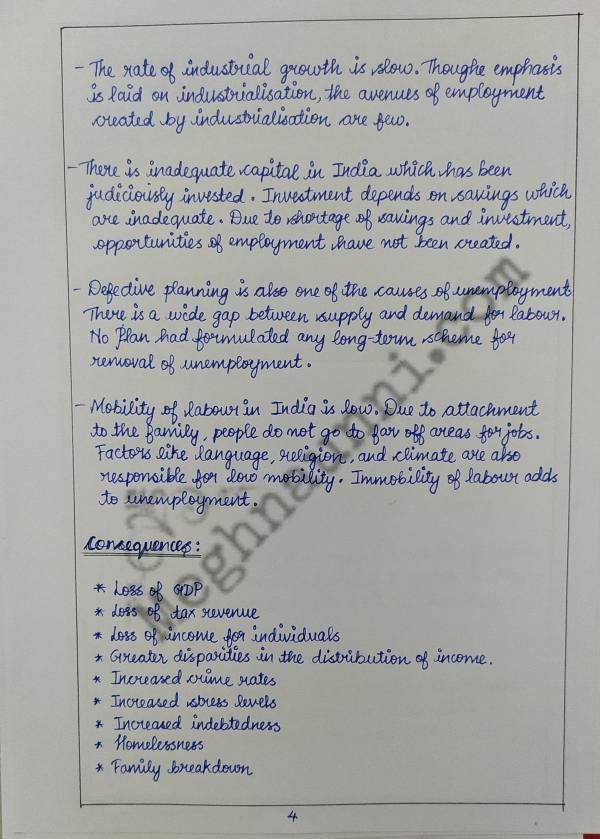 - The rate of industrial growth is slow. Thoughe emphasis
is laid on industrialisation, the avenues of employment
created by industrialisation are few.
- There is inadequate capital in India which has been
judiciously invested. Investment depends on savings which
are inadequate. Due to shortage of savings and investment,
opportunities of employment have not been created.
- Defective planning is also one of the causes of unemployment.
There is a wide gap between supply and demand for labour.
No Plan had formulated any long-term scheme for
removal of unemployment.
- Mobility of labour in India is low. Due to attachment
to the family, people do not go to far off areas for jobs.
Factors like language, religion, and climate are also
responsible for low mobility. Immobility of labour adds
to unemployment.
Consequences:
* Loss of GDP
* Loss of tax revenue
* Loss of income for individuals
* Greater disparities in the distribution of income.
* Increased crime rates
* Increased stress levels
* Increased indebtedness
* Homelessness
* Family breakdown
4
meghnaunni.com